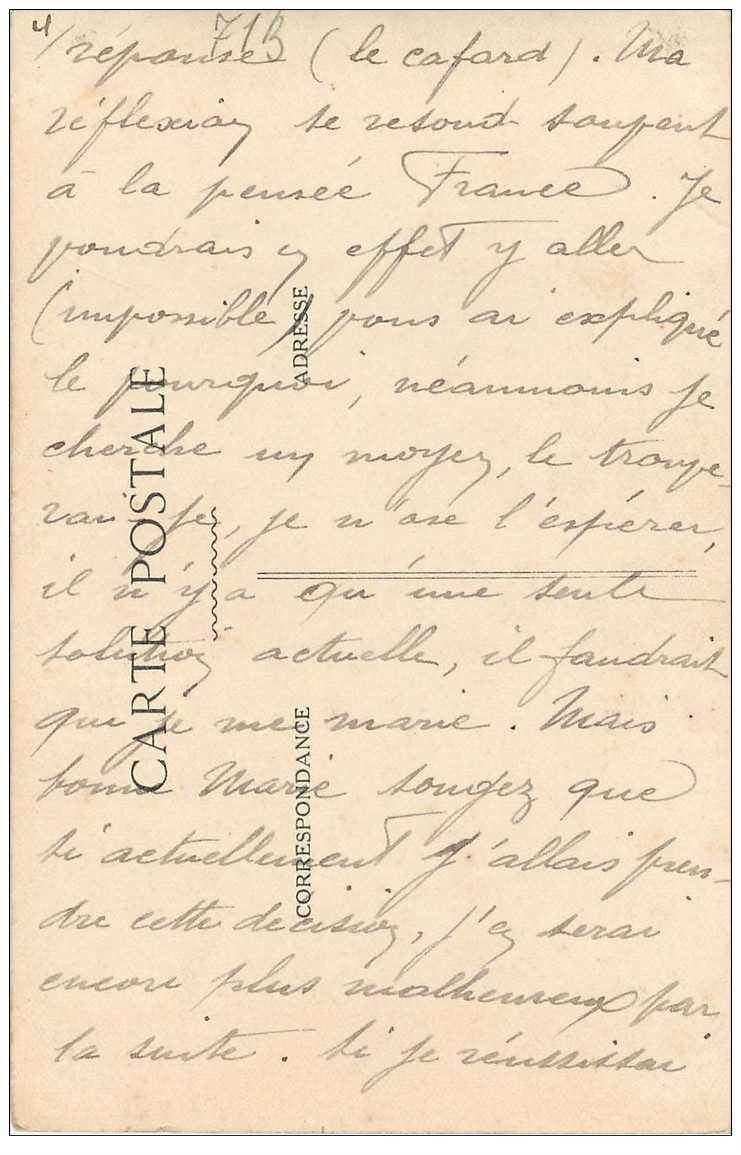 4/ 71B
réponse (le cafard). Ma
réflexion se resoud souvent
à la pensée France. Je
voudrais en effet y aller
(impossible) vous ai expliqué
le pourquoi, néanmoins je
cherche un moyen, le trouve-
rai je, je n'ose l'espérer,
il n'y a qu'une seule
solution actuelle, il faudrait
que je me marie. Mais
bonne Marie songez que
si actuellement j'allais pren-
dre cette decision, j'en serai
encore plus malheureux par
la suite. Si je réussissai
CARTE POSTALE
ADRESSE
CORRESPONDANCE